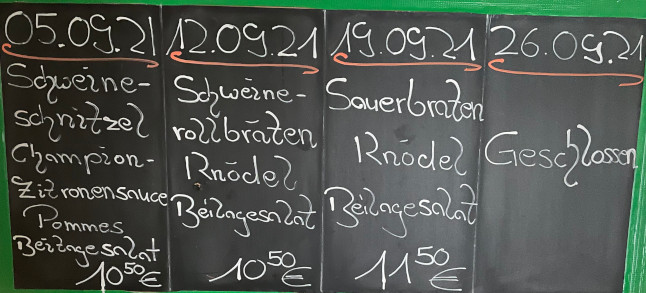 05.09.21
Schweine-
schnitzel
Champion-
Zitronensauce
Pommes
Beilagesalat
10⁵⁰€
12.09.21
Schweine-
rollbraten
Knödel
Beilagesalat
10⁵⁰€
19.09.21
Sauerbraten
Knödel
Beilagesalat
11⁵⁰€
26.09.21
Geschlossen